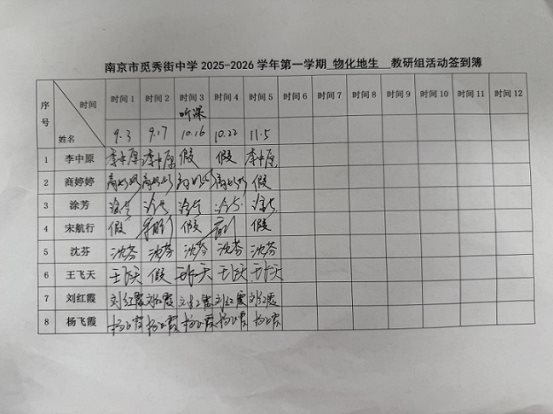 南京市觅秀街中学 2025-2026 学年第一学期 物化地生 教研组活动签到簿
序号 时间 姓名 时间 1 时间 2 时间 3 时间 4 时间 5 时间 6 时间 7 时间 8 时间 9 时间 10 时间 11 时间 12
听课
9.3 9.17 10.16 10.22 11.5
1 李中原 李中原 李中原 假 假 李中原
2 商婷婷 商婷婷 商婷婷 商婷婷 商婷婷 假
3 涂芳 涂芳 涂芳 涂芳 涂芳 涂芳
4 宋航行 假 宋航行 假 宋航行 假
5 沈芬 沈芬 沈芬 沈芬 沈芬 沈芬
6 王飞天 王飞天 假 王飞天 王飞天 王飞天
7 刘红霞 刘红霞 刘红霞 刘红霞 刘红霞 刘红霞
8 杨飞霞 杨飞霞 杨飞霞 杨飞霞 杨飞霞 杨飞霞